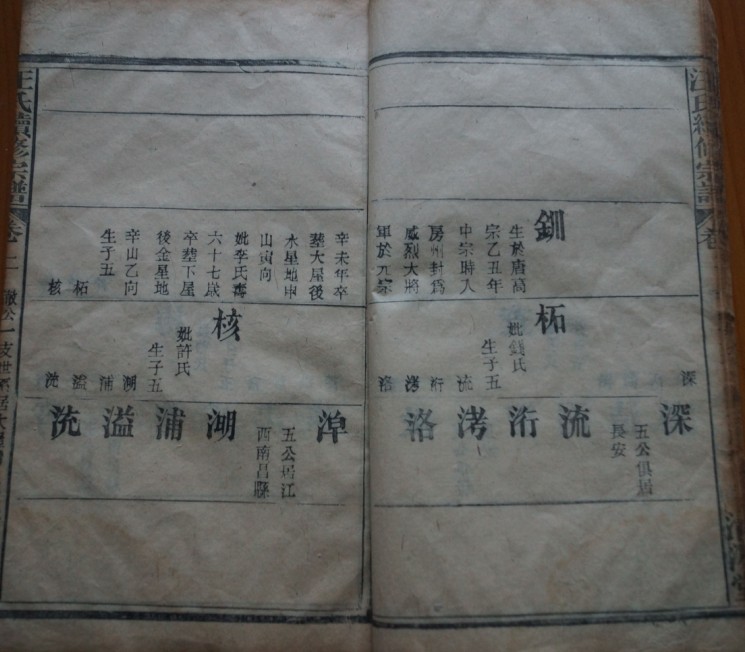 汪氏續修宗譜
卷
釧
生於唐高
宗乙丑年
中宗時人
房州封爲
威烈大將
軍於元宗
柘
妣錢氏
生子五
深
流
洐
洘
洛
深
五公俱居
長安
流
洐
洘
洛
辛未年卒
塟大屋後
水星地申
山寅向
妣李氏壽
六十七歲
卒塟下屋
後金星地
辛山乙向
生子五
柘
核
核
妣許氏
生子五
湖
浦
溢
沈
淖
五公居江
西南昌縣
湖
浦
溢
沈
汪氏續修宗譜
卷二